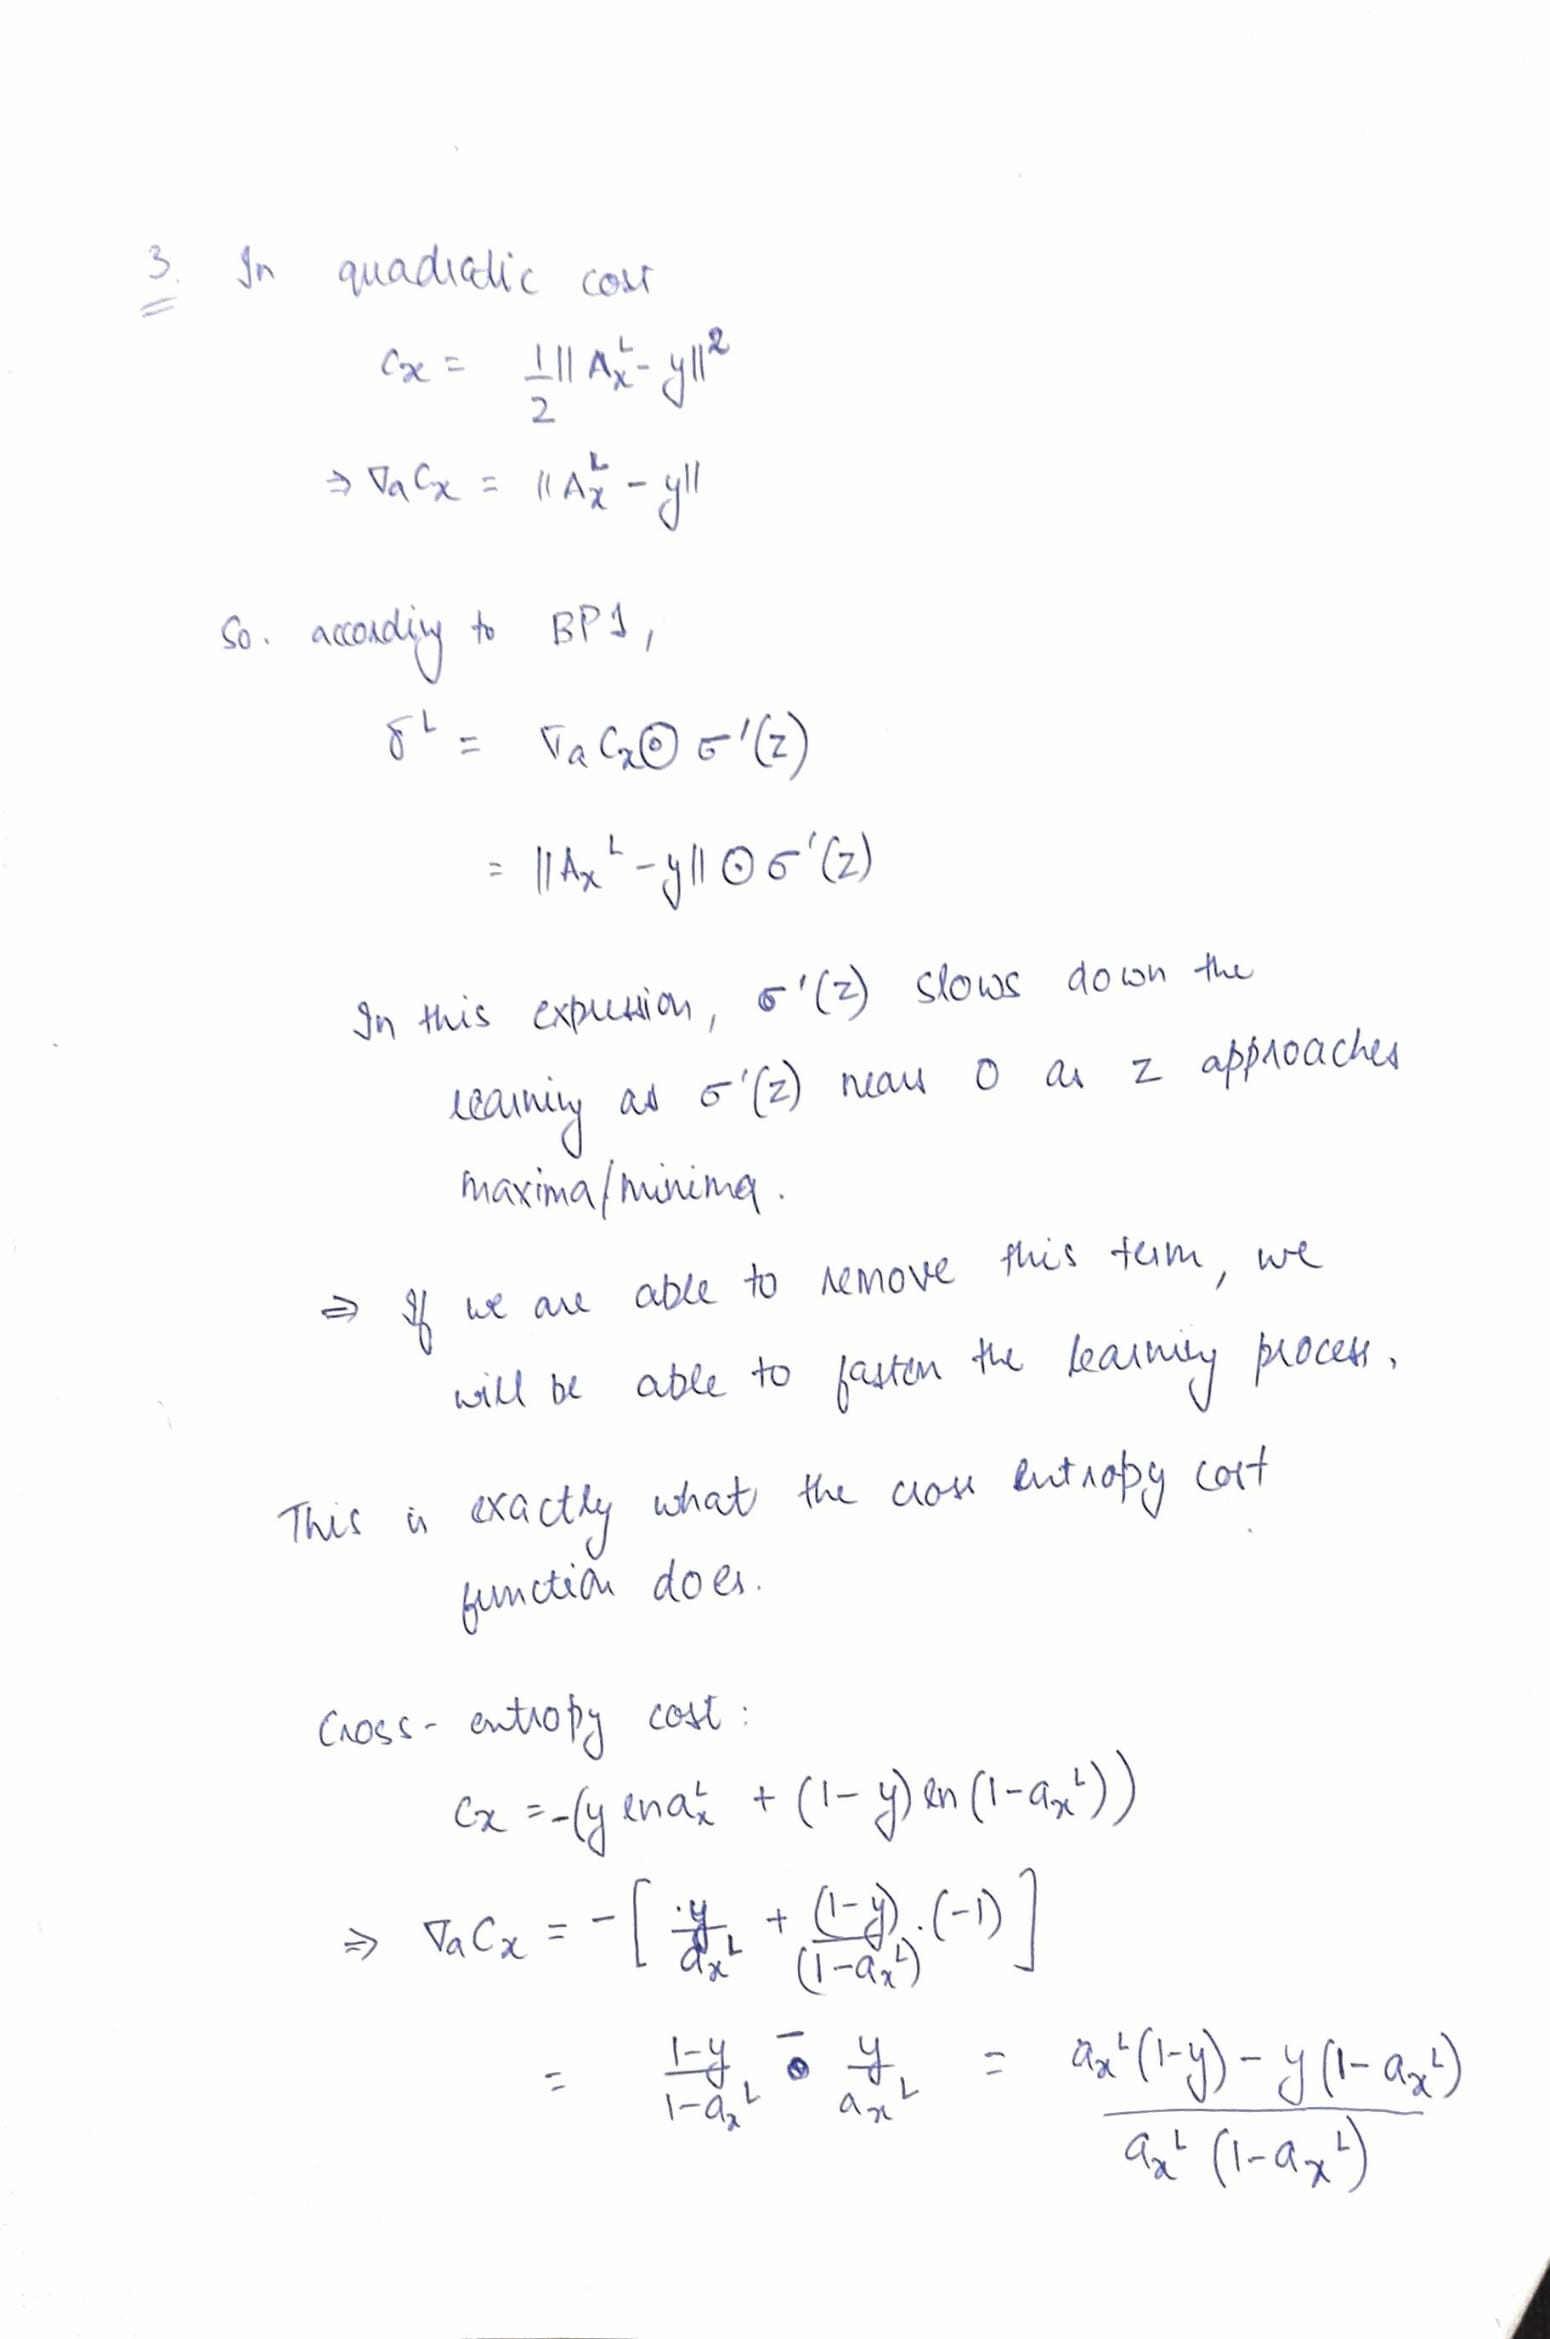 3. In quadratic cost
Cx = 1/2 || A_x^L - y ||^2
⇒ ∇a Cx = || A_x^L - y ||
So. according to BP1,
δ^L = ∇a Cx ⊙ σ'(z)
= || A_x^L - y || ⊙ σ'(z)
In this expression, σ'(z) slows down the
learning as σ'(z) nears 0 as z approaches
maxima/minima.
⇒ If we are able to remove this term, we
will be able to fasten the learning process.
This is exactly what the cross entropy cost
function does.
Cross-entropy cost:
Cx = -(y ln a_x^L + (1-y) ln (1-a_x^L))
⇒ ∇a Cx = -[ y/a_x^L + (1-y)/(1-a_x^L) . (-1) ]
= (1-y)/(1-a_x^L) - y/a_x^L = (a_x^L (1-y) - y (1-a_x^L))/(a_x^L (1-a_x^L))